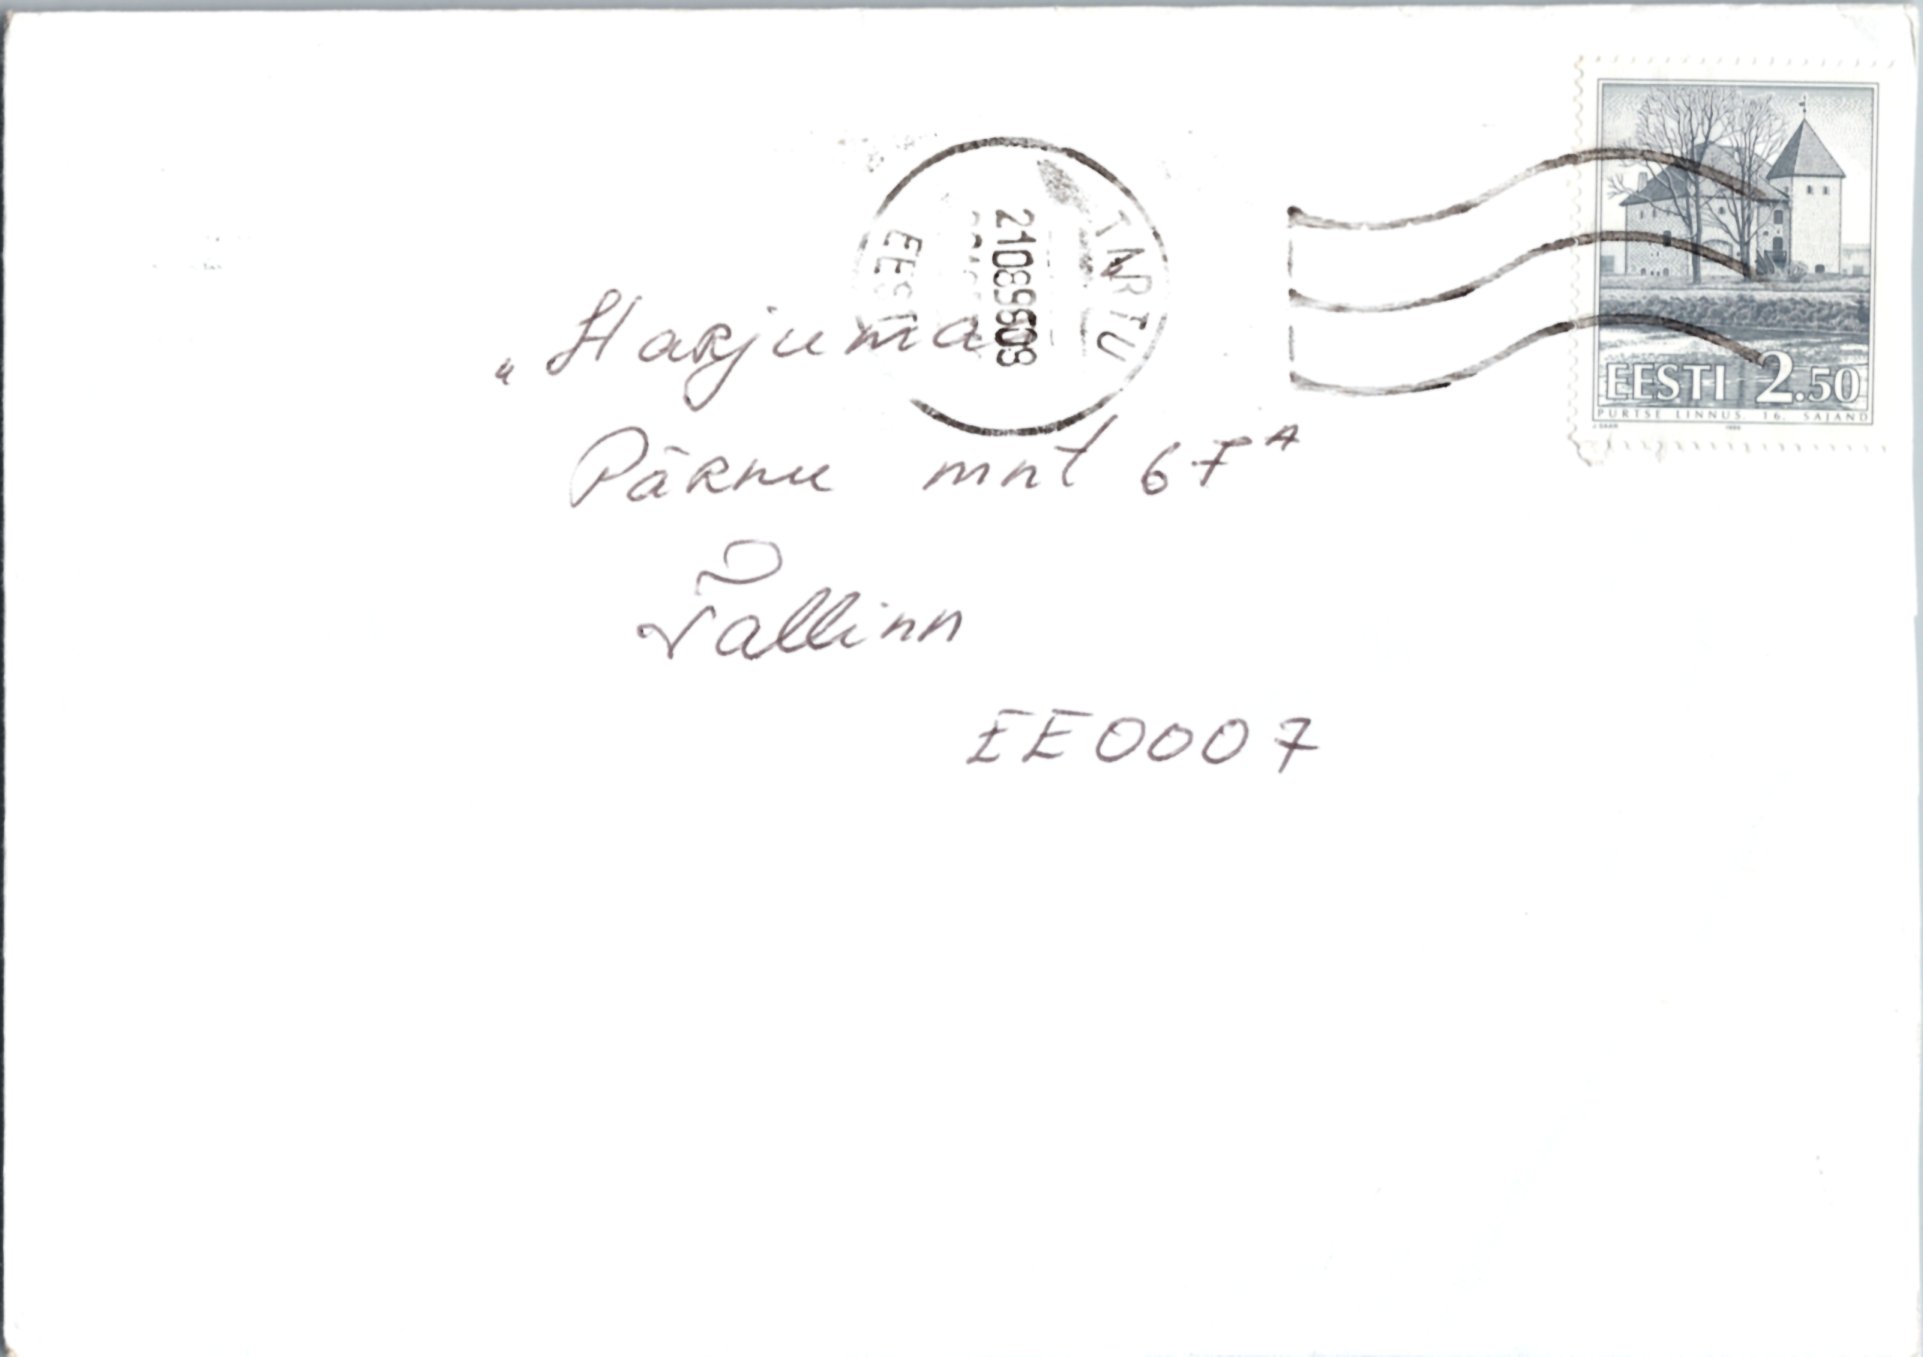 TARTU
EESTI
EESTI 2.50
PURTSE LINNUS. 16. SAJAND
„Harjuma
Pärnu mnt 67A
Tallinn
EE0007